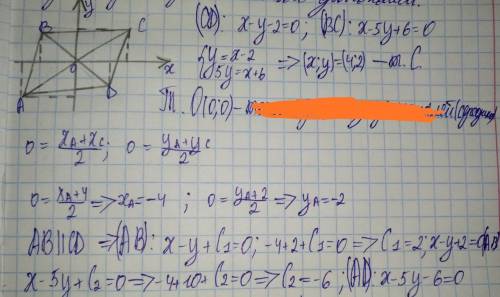 y
B C
(CD): x-y-2=0; (BC): x-5y+6=0
O x
{y=x-2
5y=x+6 => (x;y)=(4;2) - т. C
A D
Т. O(0;0)-
0 = xA+xC/2; 0 = yA+yC/2
0 = xA+4/2 => xA=-4 ; 0 = yA+2/2 => yA=-2
AB||CD => (AB): x-y+C1=0; -4+2+C1=0 => C1=2; x-y+2=0(AB)
x-5y+C2=0 => -4+10+C2=0 => C2=-6; (AD): x-5y-6=0